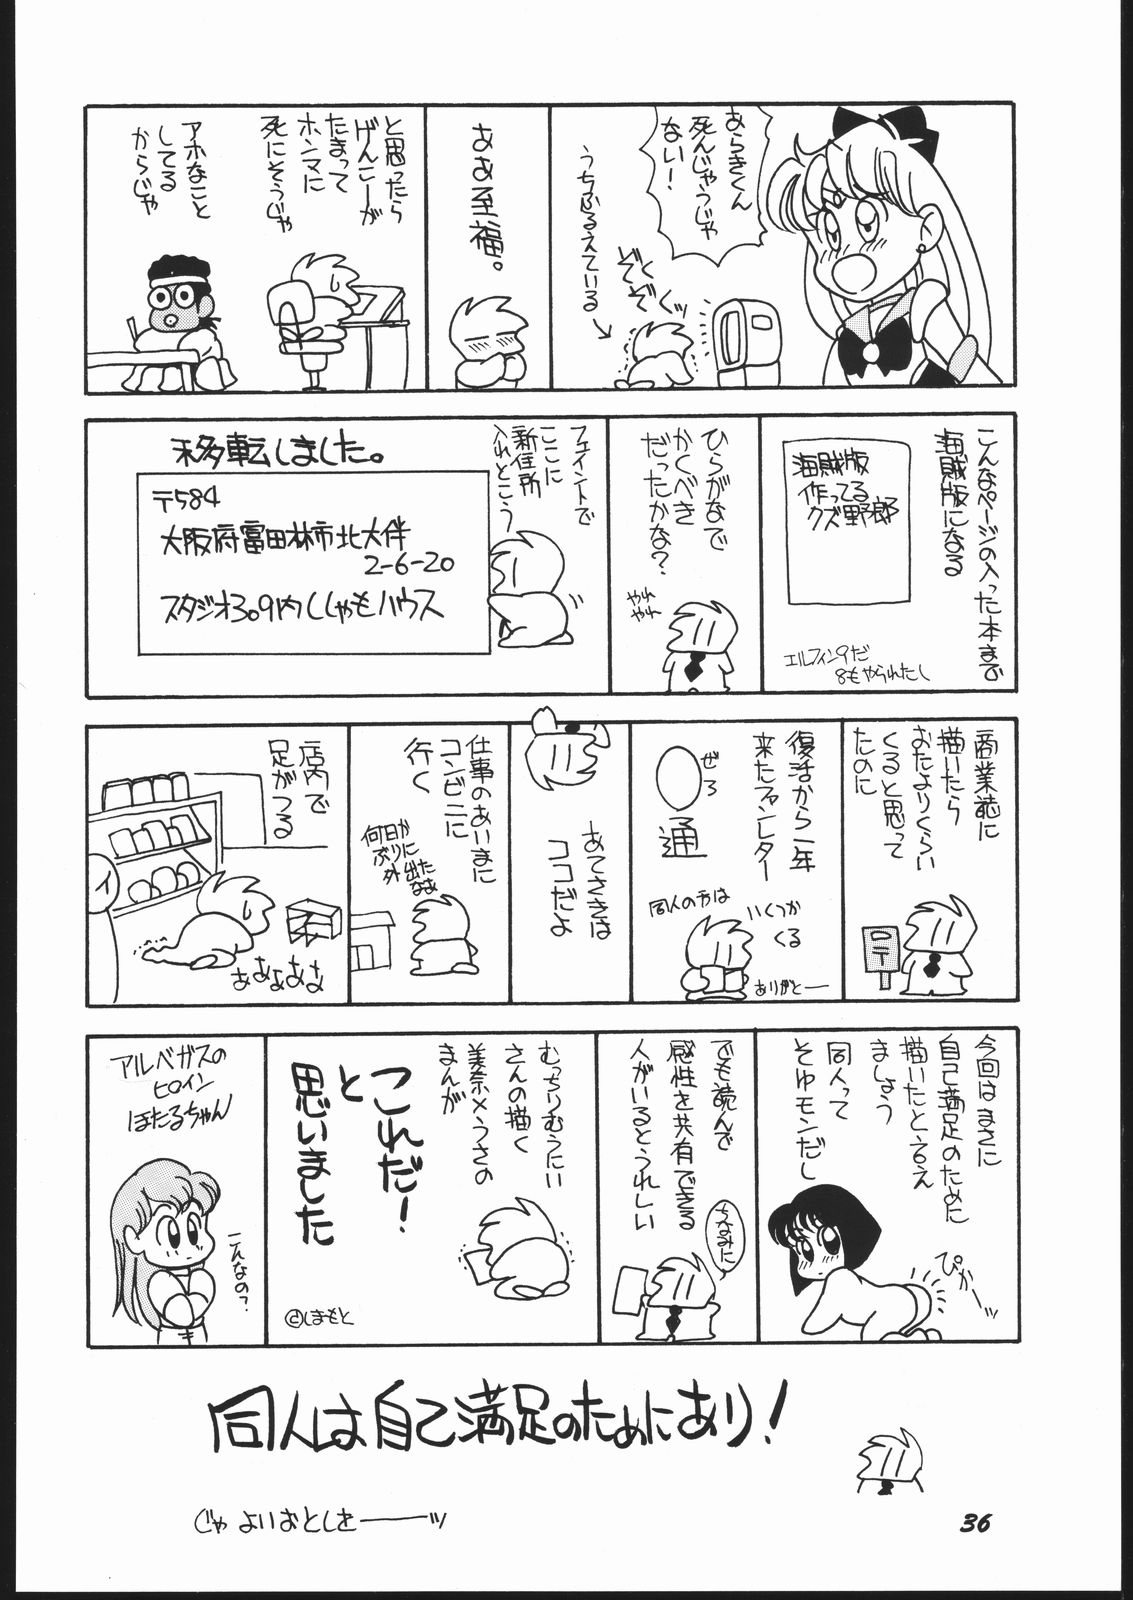 あらきくん
死んじゃうじゃ
ない!
うちふるえている
ぞくぞくッ
ああ至福。
と思ったら
げんこーが
たまって
ホンマに
死にそうじゃ
アホなこと
してる
からじゃ
こんなページの入った本まで
海賊版になる
海賊版
作ってる
クズ野郎
エルフィン9だ
8もやられたし
ひらがなで
かくべき
だったかな?
やれ
やれ
フェイントで
ここに
新住所
入れとこう
移転しました。
〒584
大阪府富田林市北大伴
2-6-20
スタジオ3。9内ししゃもハウス
商業誌に
描いたら
おたよりくらい
くると思って
たのに
復活から一年
来たファンレター
ぜろ
0通
同人の方は
いくつか
くる
ありがとー
あてさきは
ココだよ
仕事のあいまに
コンビニに
行く
何日か
ぶりに
外出た
なぁ
店内で
足がつる
イ
ああああ
今回はまさに
自己満足のために
描いたとゆえ
ましょう
同人って
そゆモンだし
ぴかーッ
でも読んで
感性を共有できる
人がいるとうれしい
ちなみに
むっちりむうにい
さんの描く
美奈×うさの
まんが
これだ!
と
思いました
©しまもと
アルベガスの
ヒロイン
ほたるちゃん
こんなの?
同人は自己満足のためにあり!
じゃ よいおとしをーーッ
36